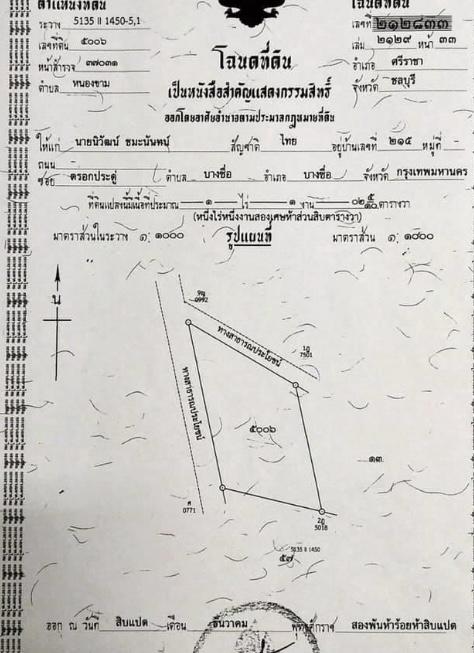 ตำแหน่งที่ดิน
ระวาง 5135 II 1450-5,1
เลขที่ดิน ๕๐๐๖
หน้าสำรวจ ๓๗๐๓๑
ตำบล หนองขาม
โฉนดที่ดิน
เลขที่ ๒๑๒๘๓๓
เล่ม ๒๑๒๙ หน้า ๓๓
อำเภอ ศรีราชา
จังหวัด ชลบุรี
โฉนดที่ดิน
เป็นหนังสือสำคัญแสดงกรรมสิทธิ์
ออกโดยอาศัยอำนาจตามประมวลกฎหมายที่ดิน
ให้แก่ นายนิวัฒน์ ชมะนันทน์ สัญชาติ ไทย อยู่บ้านเลขที่ ๒๑๕ หมู่ที่ -
ถนน
ซอย ตรอกประดู่ ตำบล บางซื่อ อำเภอ บางซื่อ จังหวัด กรุงเทพมหานคร
ที่ดินแปลงนี้มีเนื้อที่ประมาณ ๑ ไร่ ๑ งาน ๐๒ ๕/๑๐ ตารางวา
(หนึ่งไร่หนึ่งงานสองเศษห้าส่วนสิบตารางวา)
มาตราส่วนในระวาง ๑: ๑๐๐๐
รูปแผนที่
มาตราส่วน ๑: ๑๐๐๐
น
0992
7501
ทางสาธารณประโยชน์
ทางสาธารณประโยชน์
๕๐๐๖
๑๓
0771
5018
5135 II 1450
๕๗
ออก ณ วันที่ สิบแปด เดือน ธันวาคม พุทธศักราช สองพันห้าร้อยห้าสิบแปด